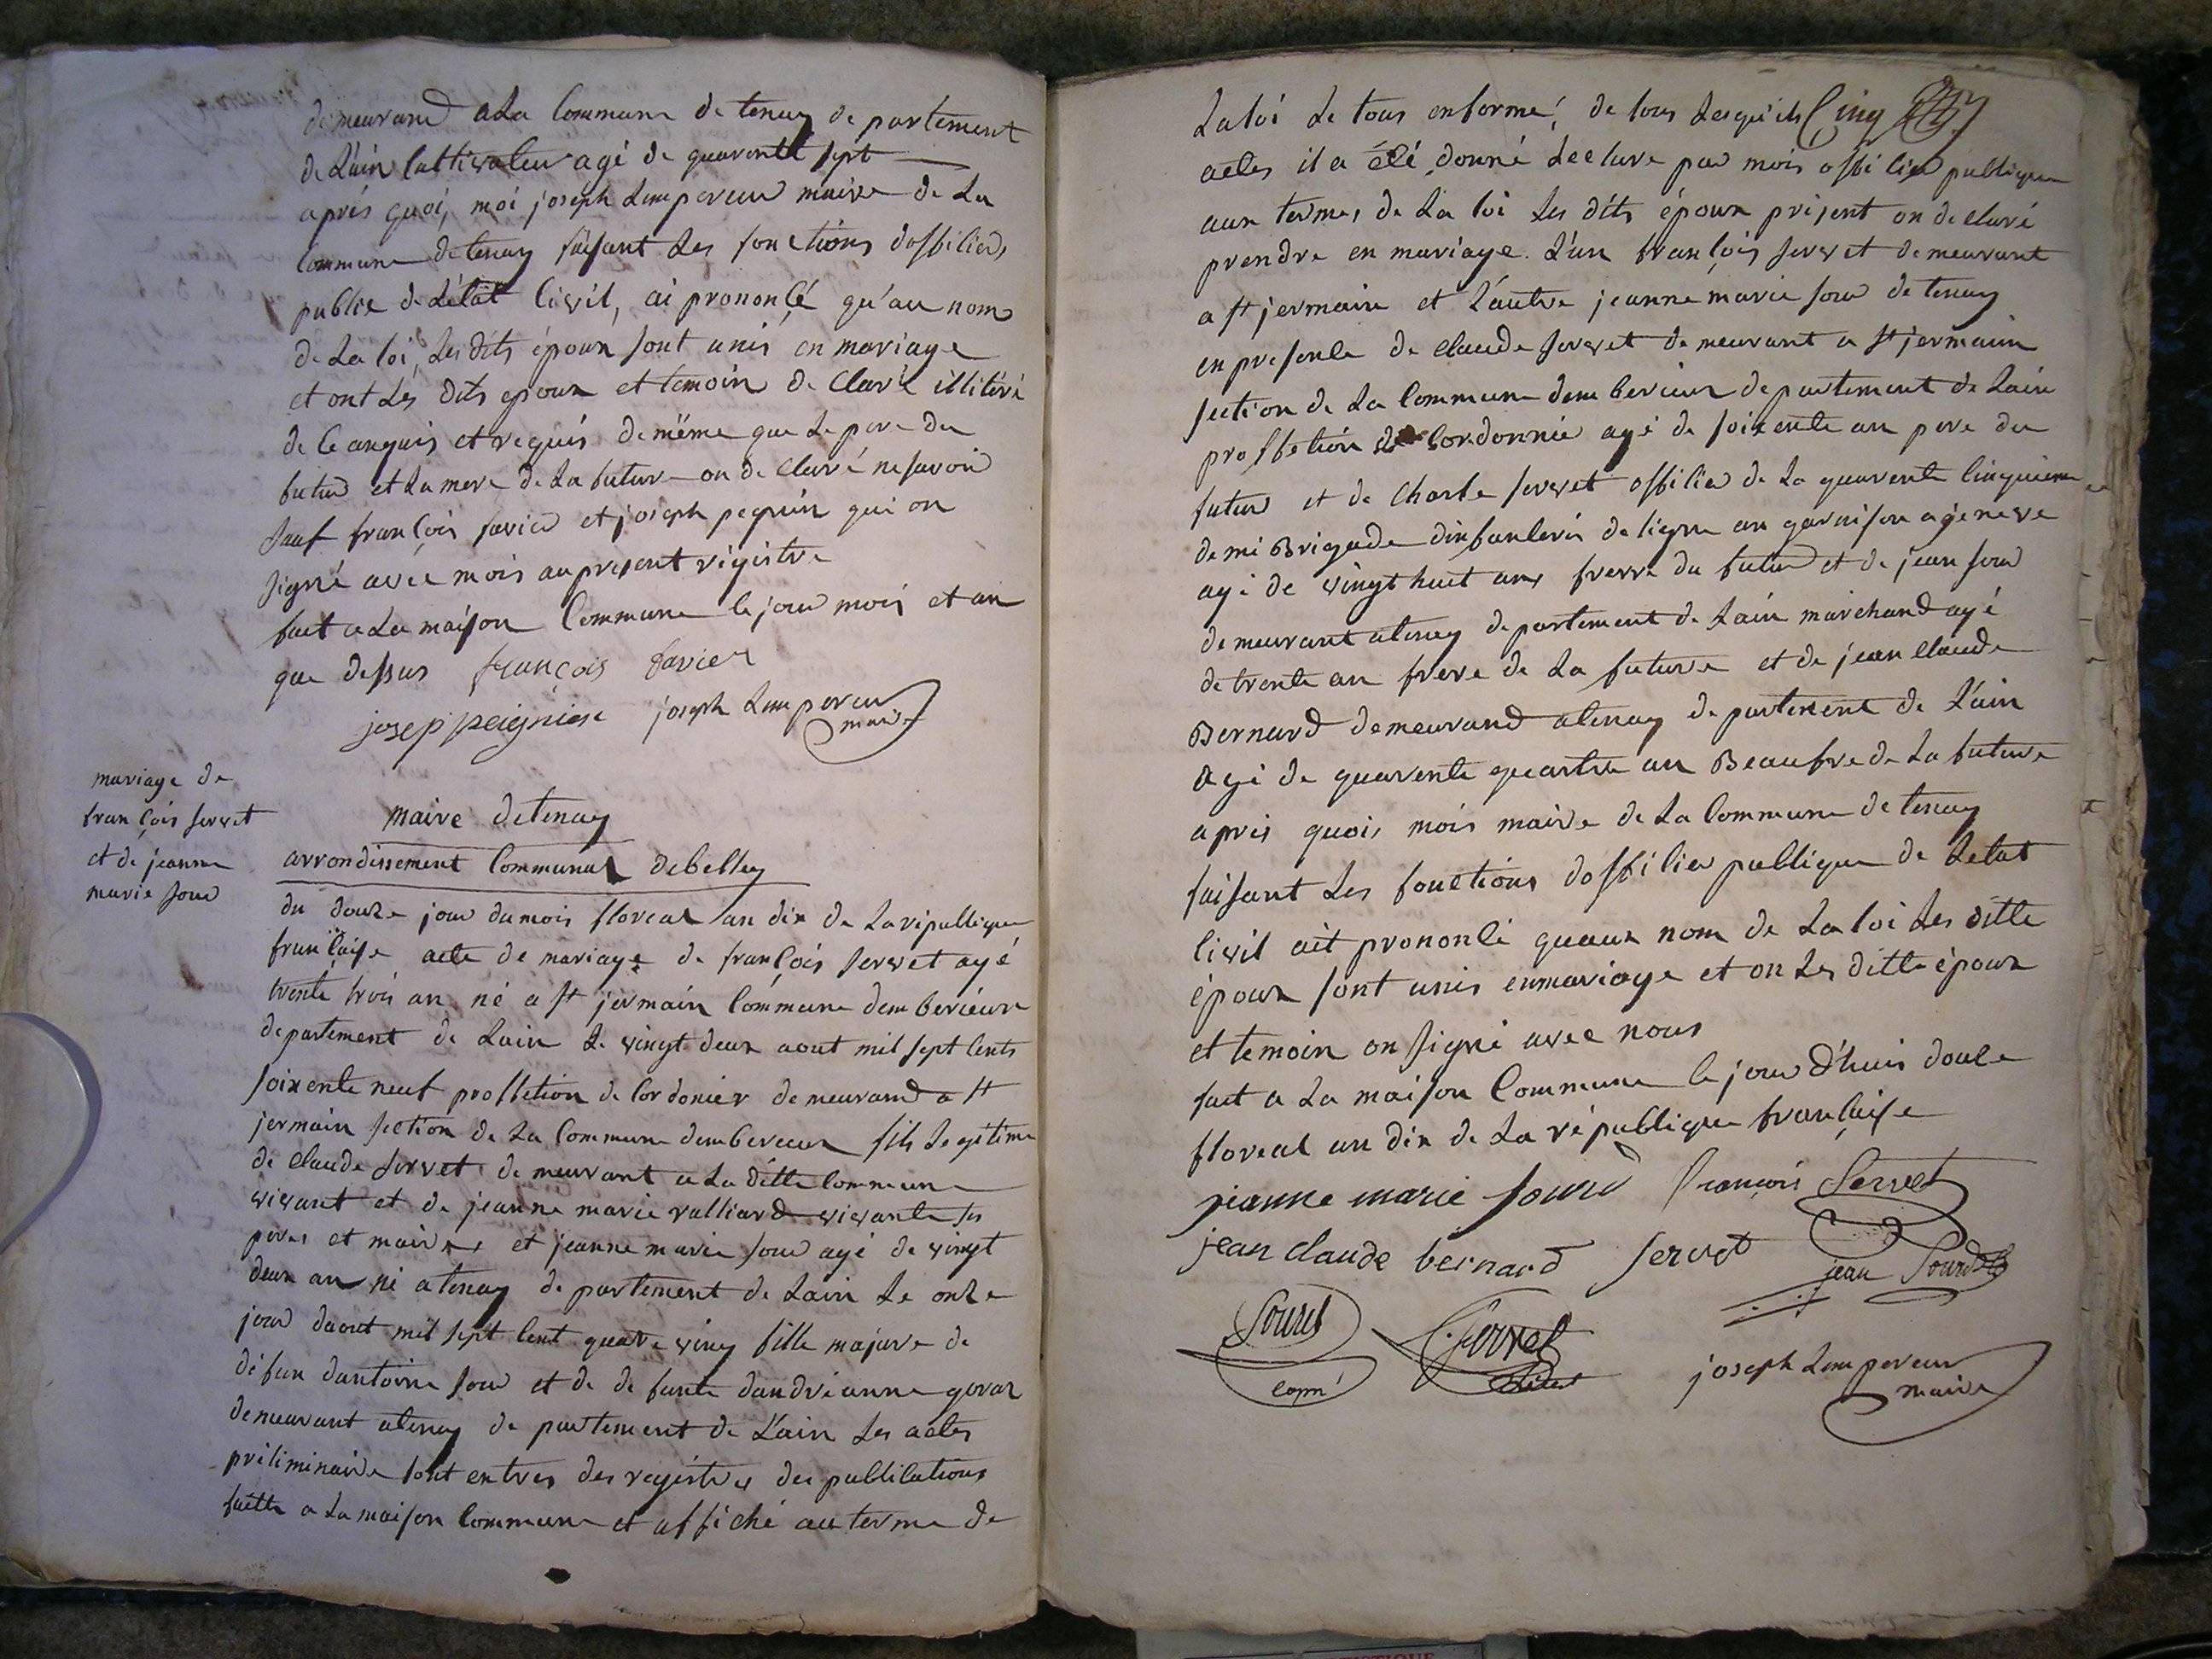 demeurand a La Commune de tenay departement
de L'ain Cultivateur agé de quarentte sept
aprés quoi, moi joseph Lempereur maire de La
Commune de tenay faisant Les fonctions dofficier
public de L'état Civil, ai prononcé qu'au nom
de La loi, Les dits époux sont unis en mariage
et ont Les dits epoux et temoin declaré illiteré
de Ce anquis et requis de même que Le pere du
futur et La mere de La future on declaré ne savoir
sauf françois favier et joseph peguin qui on
signé avec mois au present régistre
fait a La maison Commune le jour mois et an
que dessus françois favier
josep peignien joseph Lempereur
maire
mariage de
françois servet
et de jeanne
marie sour
maire de tenay
arrondissement Communal de belley
du douze jour du mois floreal an dix de La république
française acte de mariage de françois servet agé
trente trois an né a St jermain Commune demberieux
departement de Lain Le vingt deux aout mil sept Cents
soixente neuf proffetion de Cordonier demeurand a St
jermain section de La Commune dembereux fils Legitime
de Claude servet demeurant a La ditte Commune
vivant et de jeanne marie ralliard vivante ses
peres et maires et jeanne marie sour agé de vingt
deux an né a tenay departement de Lain Le onze
jour daout mil sept Cent quatre ving fille majure de
défun dantoine sour et de defunte dandréanne goraz
demeurant atenay departement de L'ain Les actes
préliminaire sont entres des registres des publications
faitte a La maison Commune et affiché au terme de
La loi Le tous enformé, de tous Lesquels Cinq
actes il a été donné Lecture par mois officier publique
aux termes de La loi Les dits époux présent on declaré
prendre en mariage L'un françois servet demeurant
a St jermain et L'autre jeanne marie sour de tenay
en presence de Claude servet demeurant a St jermain
section de La Commune demberieux departement de Lain
proffetion de Cordonnie agé de soixente an pere du
futur et de Charle servet officier de La quarente Cinquieme
demi Brigade dinfanterie de ligne an garnison a jeneve
agé de vingt huit ans frerre du futur et de jean sour
demeurant atenay departement de Lain marchand agé
de trente an frere de La future et de jean Claude
Bernard demeurand atenay departement de L'ain
agé de quarente quatre an Beaufre de La future
apris quois mois maire de La Commune de tenay
faisant Les fonctions dofficier publique de Letat
Civil ait prononcé quaux nom de La loi Les ditte
époux sont unis enmariage et on Les ditte époux
et temoin on signé avec nous
fait a La maison Commune le jour d'huis douze
floreal an dix de La république française
jeanne marie sourd françois Servet
jean claude bernard servet jean Sourd
Servet
joseph Lempereur
maire